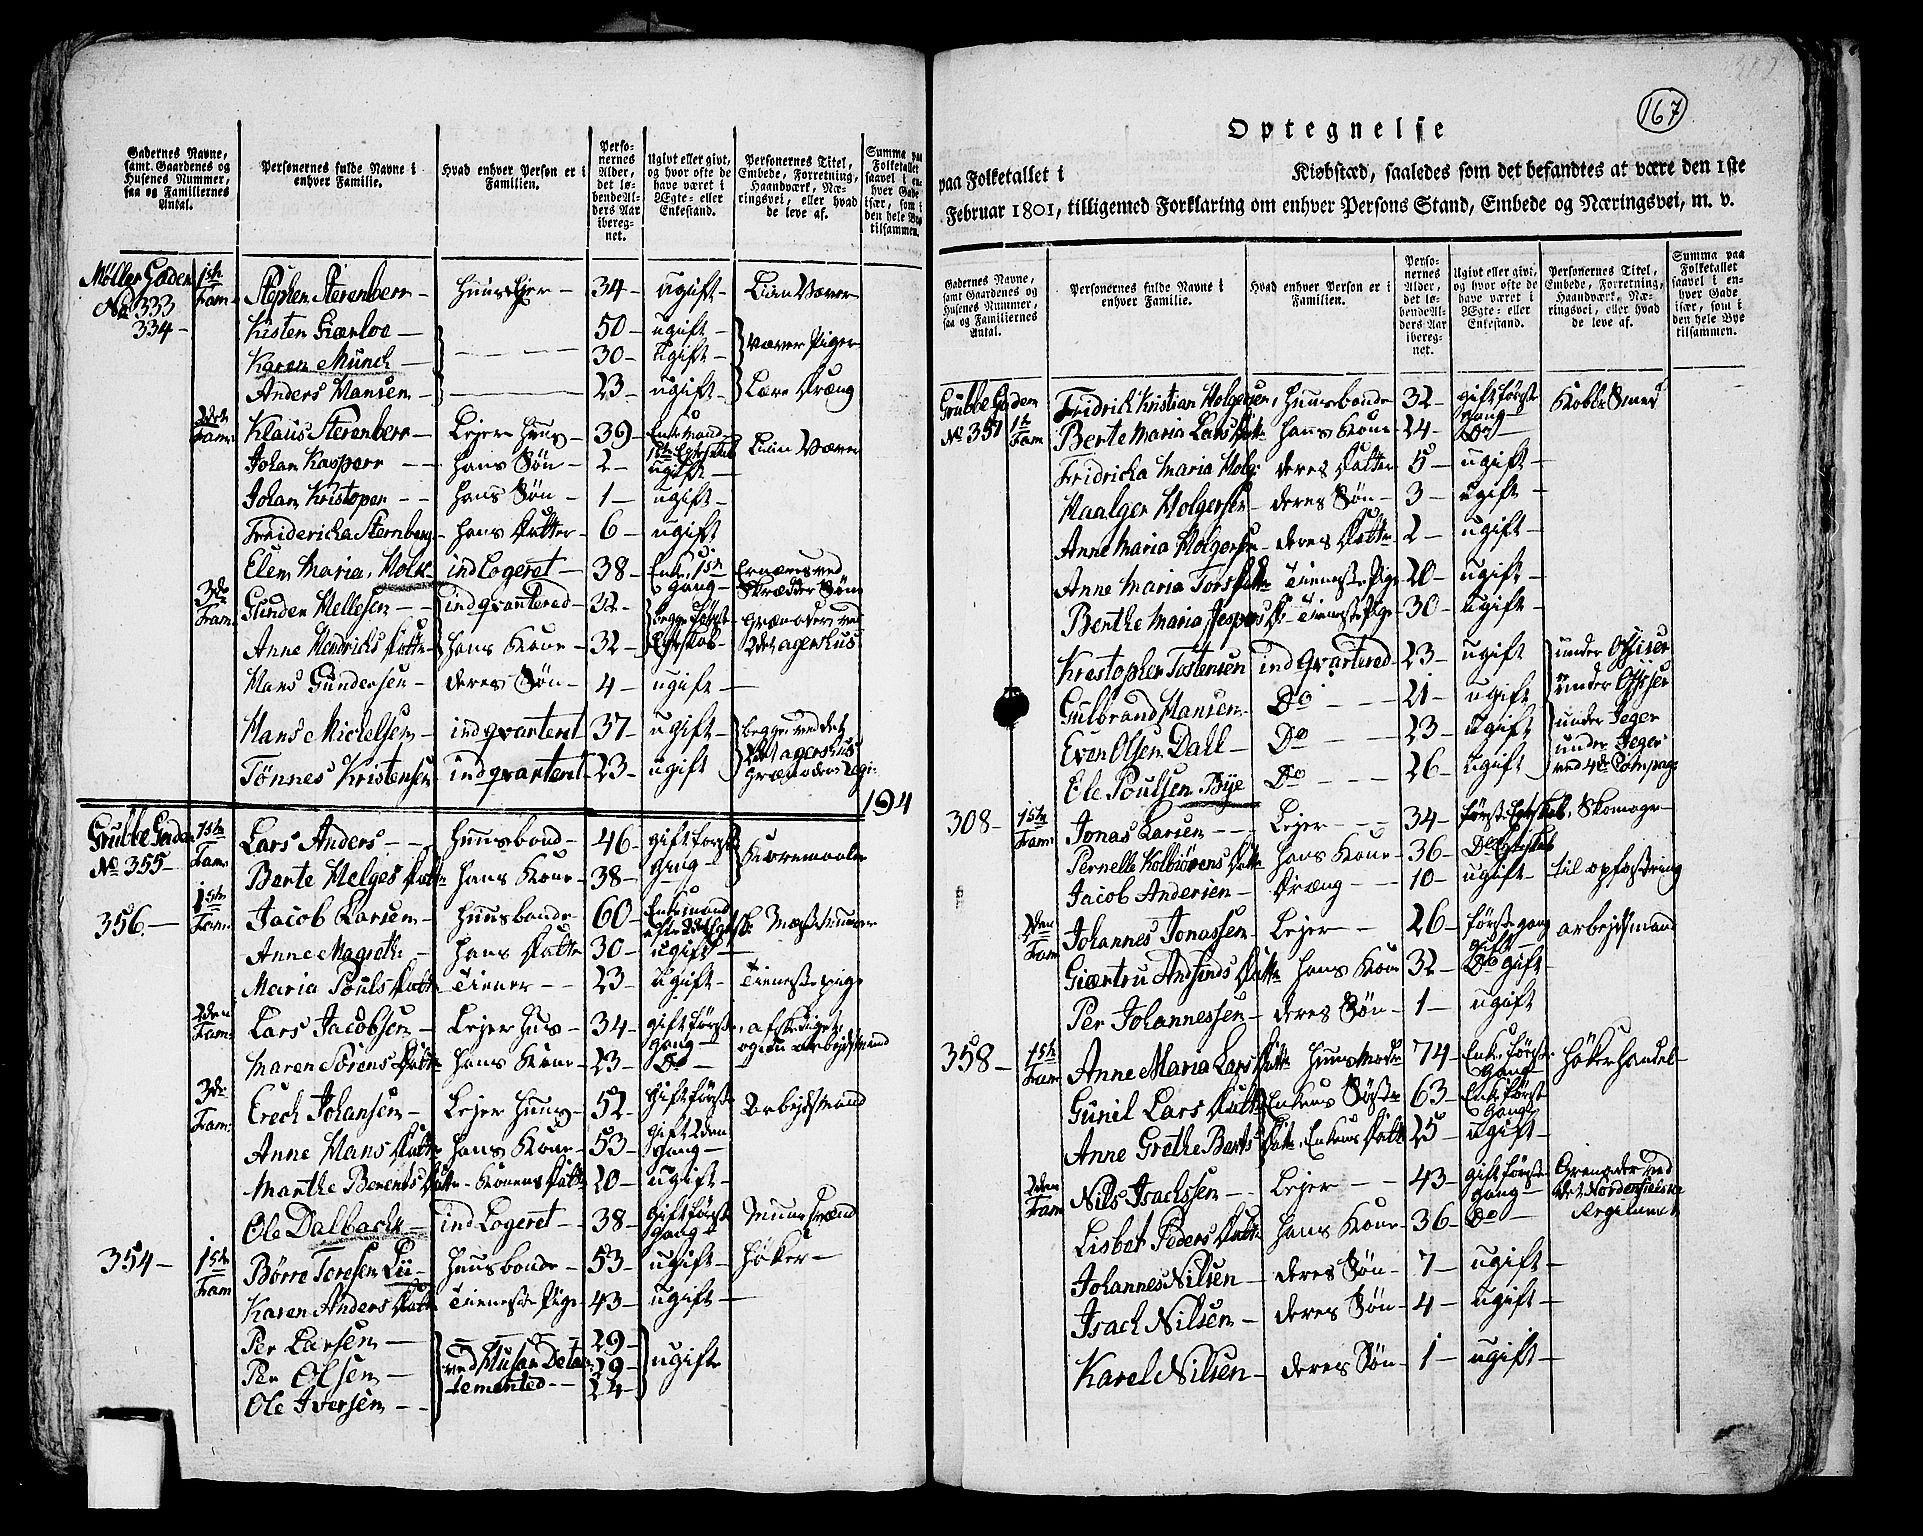 Gadernes Navne, samt Gaardenes og Husenes Nummer, saa og Familiernes Antal.
Personernes fulde Navne i enhver Familie.
Hvad enhver Person er i Familien.
Personernes Alder, det løbendeAlders Aar iberegnet.
Ugivt eller givt, og hvor ofte de have været i Ægte- eller Enkestand.
Personernes Titel, Embede, Forretning, Haandværk, Næringsvei, eller hvad de leve af.
Summa paa Folketallet saavel i enhver Gade især, som i den hele Bye tilsammen.
Møller Gaden 1ste Stephen Sterenberr - Huus Ejer - 34 - ugift - Lien Væver
No 333 Fam.
334 - Kisten Giærloe - 50 - ugift -
Karen Munch - 30 - ugift - Væver Piger
Anders Hansen - 23 - ugift - Lære Dræng
2den Fam. Klaus Sterenberr - Lejer Huus - 39 - Enke Mand 1ste Egteskab Lien Væver
Johan Kasperr - - hans Søn - 2 - ugift -
Johan Kristoper - - hans Søn - 1 - ugift -
Friedericha Sternberg - hans Datter - 6 - ugift
Elen Maria Holst - ind Logeret - 38 - Enke 1ste Gang - Ernæres ved Skrædder Søm
3de Fam. Gunder Hellesen - - indqvartered - 32 - begge første Egteskab - Grænadeer ved 2det agershus
Anne Hendrichs Datter - hans Kone - 32 -
Hans Gundersen - deres Søn - 4 - ugift -
Hans Michelsen - indqvarteret - 37 - ugift - begge ved det 2det agershus Grænadeer Regi:
Tønnes Kristensen indqvarteret - 23 - ugift
194
Grubbe Gaden 1ste Lars Anders - - Huusbond - 46 - gift første Gang -
No 355 - Fam. Berte Helges Datter hans Kone - 38 -
356 - 1ste Fam. Jacob Larsen - Huusbonde - 60 - Enkemand
Anne Magrethe - hans Datter 30 - ugift -
Maria Pouls Datter Tiener - - 23 - ugift - Tieneste pige
2den Fam. Lars Jacobsen - Lejer Hus - 34 - gift første gang - afskediget og nu arbejdsmand
Maren Sörens Datter hans Kone - 23 - Do -
3de Fam. Erech Johansen - Lejer Huus - 52 - Gift første Arbejdsmand
Anne Hans Datter hans Kone - 53 - gift 2den gang -
Marthe Berents Datter - Konens Datter - 20 - ugift -
Ole Dalbache - ind Logeret - 38 - gift første gang -
354 - 1ste Fam Børre Toresen Lie - Huusbonde - 53 - ugift - Høker -
Karen Anders Datter Tieneste Pige - 43 - ugift -
Per Larsen - 29 -
Per Olsen - ved Husar Detachemented - - 29 - ugifte
Ole Iversen - - 24 -
167
Optegnelse
paa Folketallet i Kiøbstæd, saaledes som det befandtes at være den 1ste
Februar 1801, tilligemed Forklaring om enhver Persons Stand, Embede og Næringsvei, m. v.
Gadernes Navne, samt Gaardenes og Husenes Nummer, saa og Familiernes Antal.
Personernes fulde Navne i enhver Familie.
Hvad enhver Person er i Familien.
Personernes Alder, det løbendeAlders Aar iberegnet.
Ugivt eller givt, og hvor ofte de have været i Ægte- eller Enkestand.
Personernes Titel, Embede, Forretning, Haandværk, Næringsvei, eller hvad de leve af.
Summa paa Folketallet saavel i enhver Gade især, som i den hele Bye tilsammen.
Grubbe Gaden Fridrich Kristian Holgersen, Huusbonde 32 - gift først gang - Kobber Smed
No 357 1ste Fam Berte Maria Lars Datter hans Kone - 24 - Do -
Fridricha Maria Holg: deres Datter 5 - ugift -
Haalger Holgersen - deres Søn - 3 - ugift -
Anne Maria Holgersen - deres Datter - 2 - ugift -
Anne Maria Tors Datter Tieneste Pige 20 - ugift -
Berthe Maria Jespers D: Tieneste Pige 30 - ugift -
Krestopher Tostensen indqvartered - 23 - ugift under Officer
Gulbrand Hansen - Do - - 21 - ugift under Officer
Even Olsen Dall - Do - - 23 - ugift under Jeger
Ole Poulsen Bye Do - - 26 - ugift under Jeger ved 4de Compagn
308 - 1ste Fam Jonas Larsen - - - Lejer - - 34 - første Egteskab, Skomager -
Pernelle Kolbiørens Datter hans Kone - 36 - Do Egteskab
Jacob Andersen - Dræng - - 10 - ugift - til opfostring
2den Fam Johannes Jonassen - Lejer - 26 - første gang gift - arbejdsmand
Giærtru Amunds Datter hans Kone 32 - Do gift
Per Johannessen - deres Søn - 1 - ugift
358 - 1ste Fam Anne Maria Lars Datter Huus Moder 74 - Enke første Gang høkerhandel -
Gunil Lars Datter Enkens Søster 63 - Enke først Gang
Anne Grethe Bents Datter, Enkens Datter 25 - ugift -
2den Fam Nils Isachssen - - Lejer - - 43 - gift første gang - Grenader ved det Nordenfielske Regiment
Lisbet Peders Datter hans Kone - 36 - Do -
Johannes Nilsen - deres Søn - 7 - ugift -
Isach Nilsen - deres Søn - 4 - ugift -
Karel Nilsen - deres Søn - 1 - ugift -